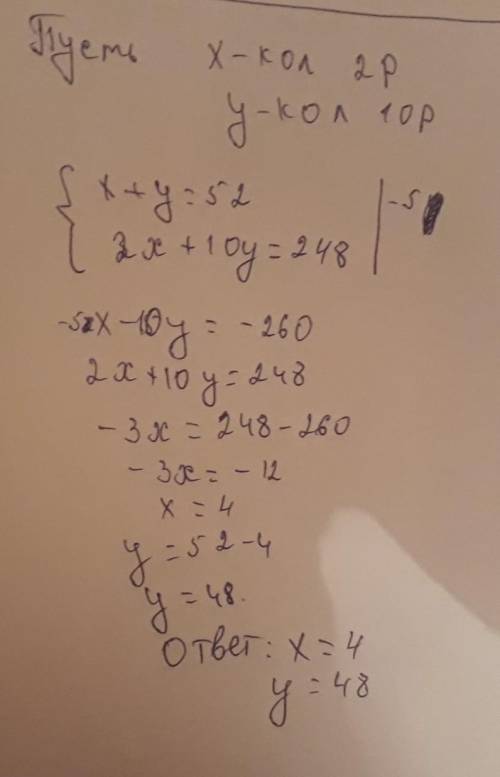 Пусть x-кол 2р
y-кол 10р
x+y=52 |-5
2x+10y=248
-5x-10y=-260
2x+10y=248
-3x=248-260
-3x=-12
x=4
y=52-4
y=48.
Ответ: x=4
y=48